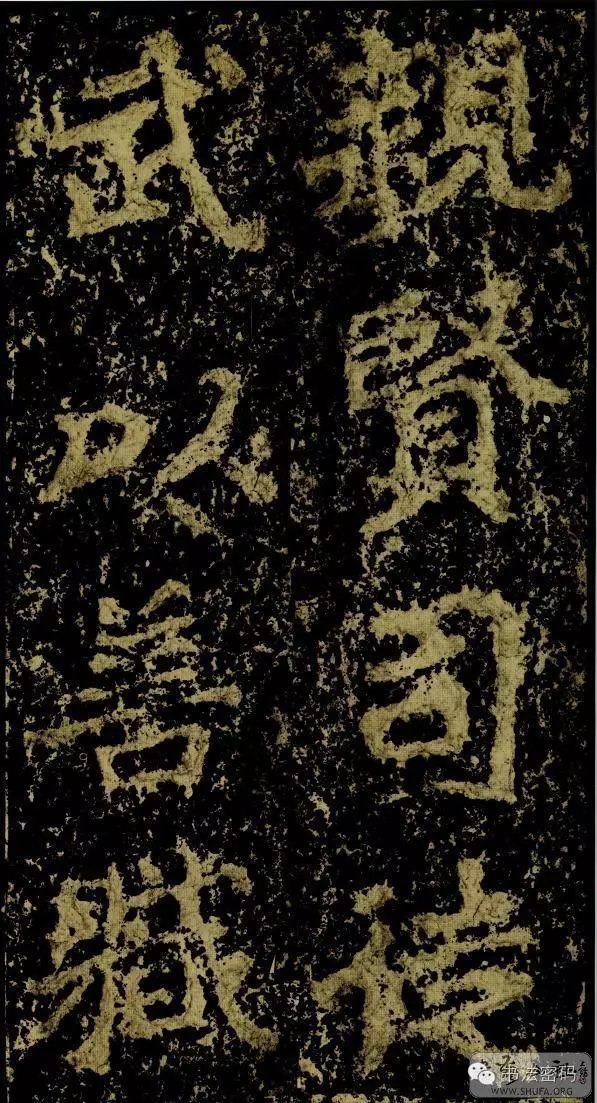 親賢司徒
武以善職
书法密码
WWW.SHUFA.ORG